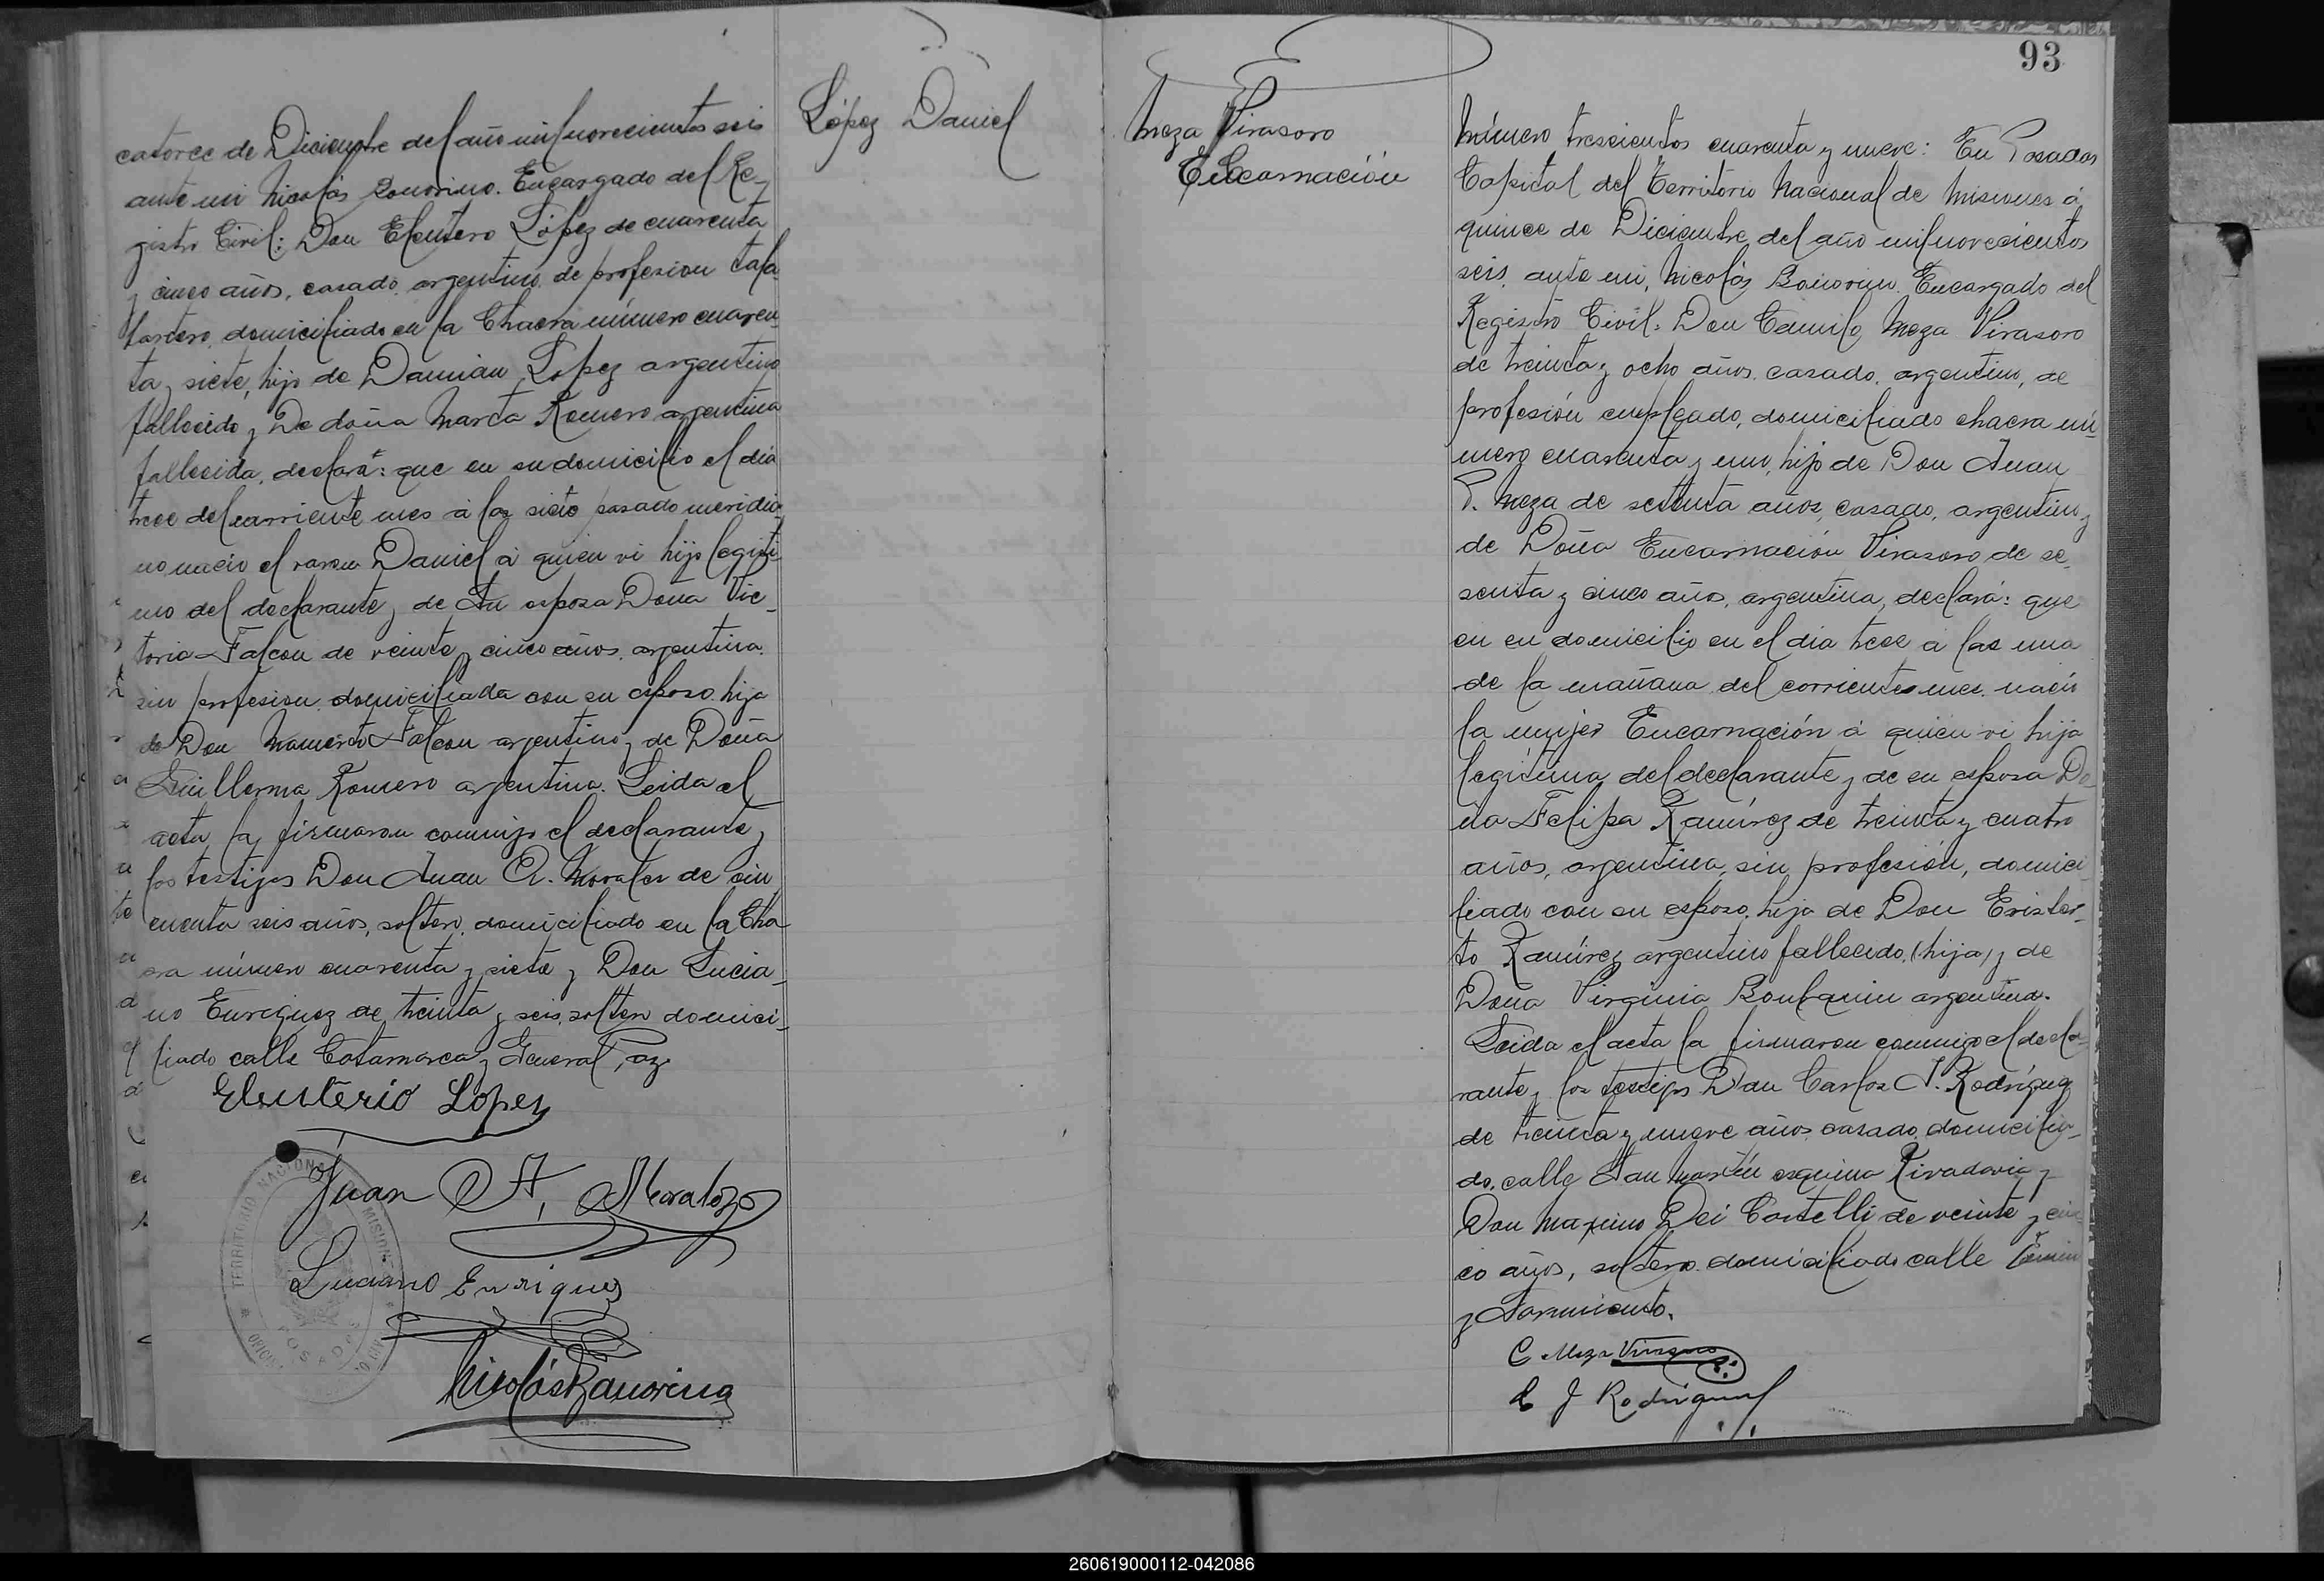 catorce de Diciembre del año mil novecientos seis
ante mi Nicolás Bonorino. Encargado del Re-
gistro Civil: Don Eleuterio López de cuarenta
y cinco años, casado, argentino, de profesion tala
bartero, domiciliado en la Chacra número cuaren-
ta y siete, hijo de Damián López argentino
fallecido y De doña Marta Romero argentina
fallecida, declara: que en su domicilio el dia
trece del corriente mes à las siete pasado meridia-
no nació el varon Daniel à quien vi hijo legiti-
mo del declarante y de Su esposa Doña Vic-
toria Falcon de veinte y cinco años, argentina
sin profesion, domiciliada con su esposo, hija
de Don Mamerto Falcon argentino y de Doña
Guillerma Romero argentina. Leida el
acta la firmaron conmigo el declarante y
los testigos Don Juan A. Morales de cin
cuenta seis años, soltero, domiciliado en la Cha
cra número cuarenta y siete y Don Lucia-
no Enriquez de treinta y seis, soltero domici-
liado calle Catamarca y General Paz
Eleuterio Lopez
Juan A. Morales
Luciano Enriquez
Nicolás Bonorino
TERRITORIO NACIONAL MISIONES
POSADAS
López Daniel
93
Meza Virasoro
Encarnación
Número trescientos cuarenta y nueve: En Posadas
Capital del Territorio Nacional de Misiones á
quince de Diciembre del año mil novecientos
seis, ante mi, Nicolás Bonorino, Encargado del
Registro Civil: Don Camilo Meza Virasoro
de treinta y ocho años, casado, argentino, de
profesión empleado, domiciliado chacra nú-
mero cuarenta y uno, hijo de Don Juan
P. Meza de setenta años, casado, argentino y
de Doña Encarnación Virasoro de se-
senta y cinco años, argentina, declara: que
en su domicilio en el dia trece a las una
de la mañana del corriente mes, nació
la mujer Encarnación á quien vi hija
legitima del declarante y de su esposa Do-
ña Felipa Ramírez de treinta y cuatro
años, argentina, sin profesión, domici
liado con su esposo, hija de Don
to Ramírez argentino fallecido, (hija) y de
Doña Virginia argentina.
Leida el acta la firmaron conmigo el decla-
rante y los testigos Don Carlos J. Rodríguez
de treinta y nueve años casado, domicilia-
do, calle San Martín esquina Rivadavia y
Don Maximo Dei Castelli de veinte y cin
co años, soltero domiciliado calle Junin
y Sarmiento.
C Meza Virasoro
C J Rodriguez
260619000112-042086